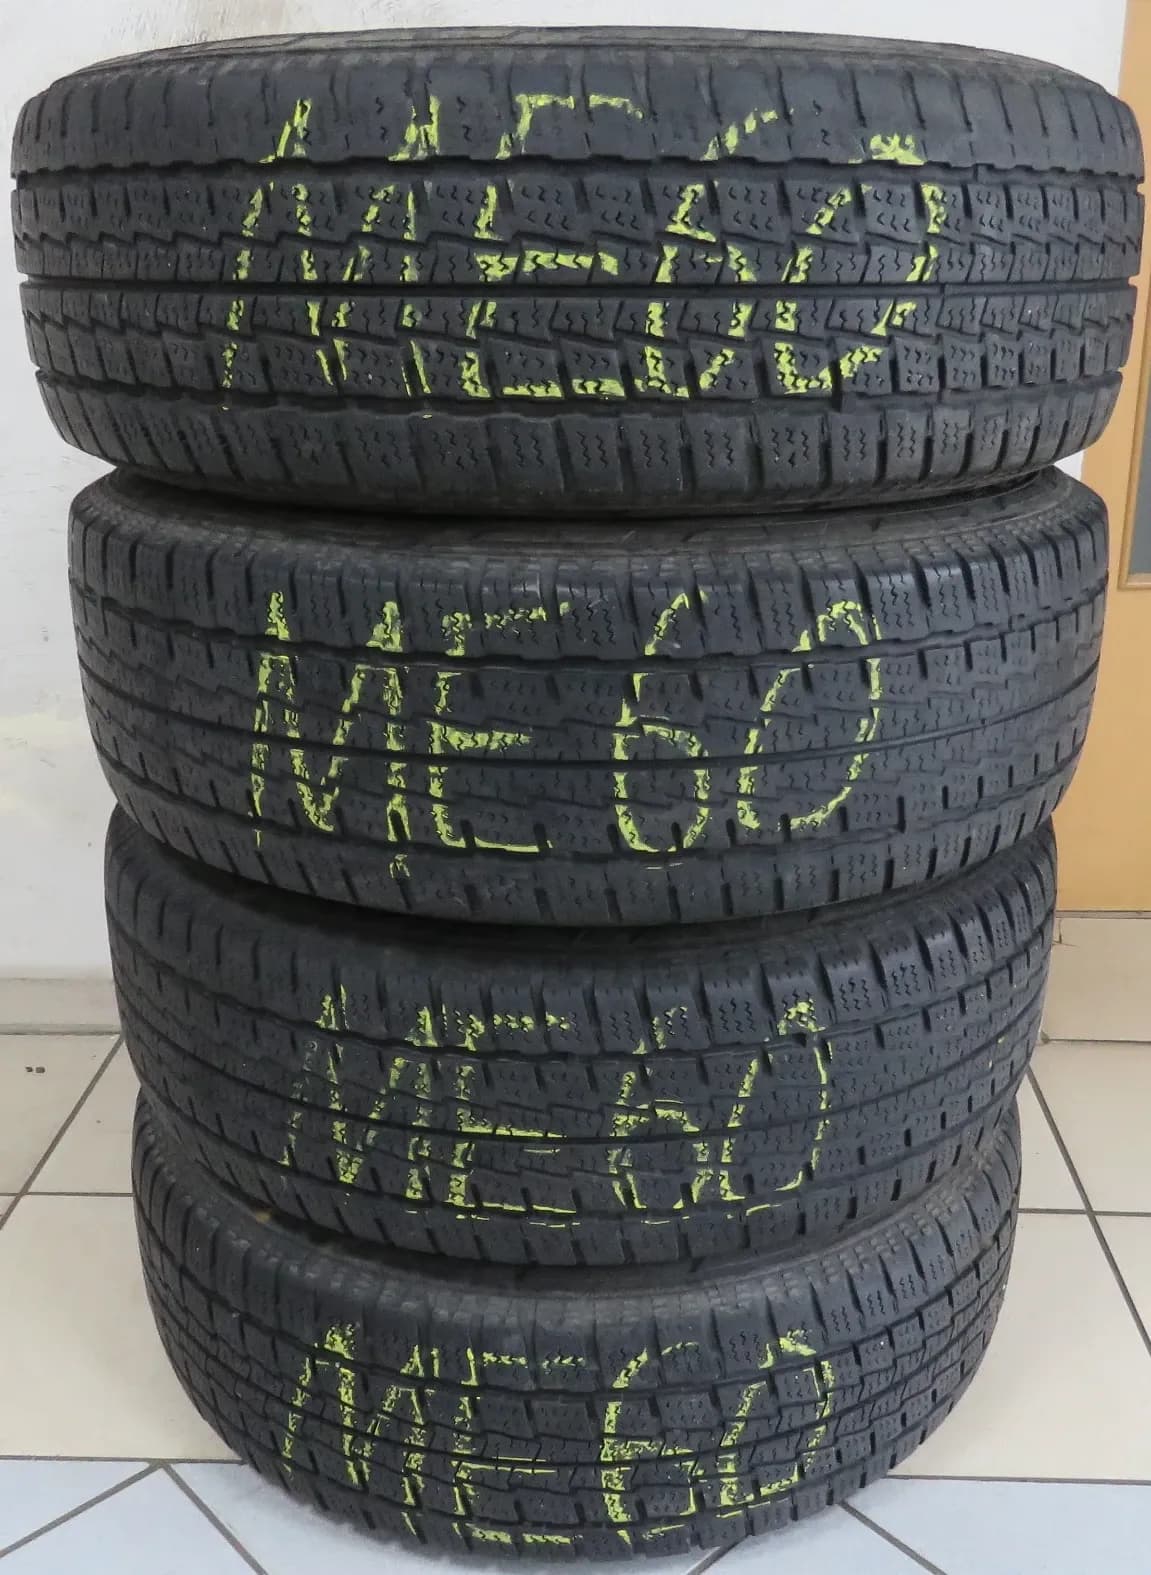 ME60
ME60
ME60
ME60